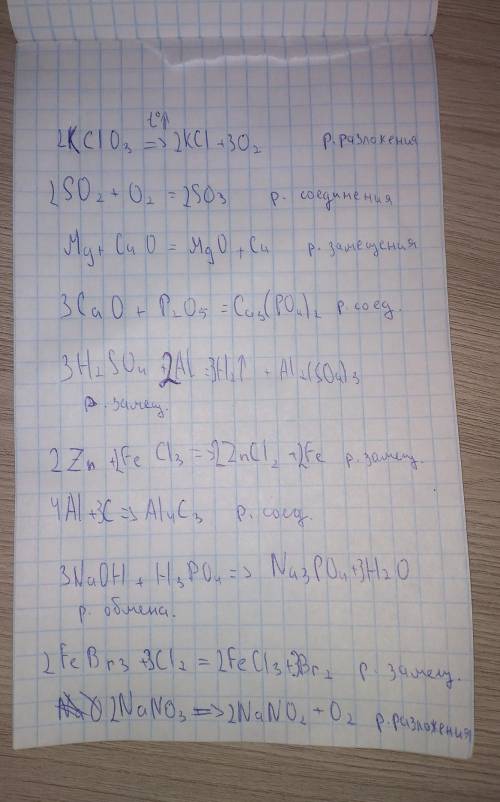 t°↑
2KClO₃ => 2KCl + 3O₂ р. разложения
2SO₂ + O₂ = 2SO₃ р. соединения
Mg + CuO = MgO + Cu р. замещения
3CaO + P₂O₅ = Ca₃(PO₄)₂ р. соед.
3H₂SO₄ + 2Al = 3H₂↑ + Al₂(SO₄)₃
р. замещ.
2Zn + 2FeCl₃ => 2ZnCl₂ + 2Fe р. замещ.
4Al + 3C => Al₄C₃ р. соед.
3NaOH + H₃PO₄ => Na₃PO₄ + 3H₂O
р. обмена.
2FeBr₃ + 3Cl₂ = 2FeCl₃ + 3Br₂ р. замещ.
2NaNO₃ => 2NaNO₂ + O₂ р. разложения